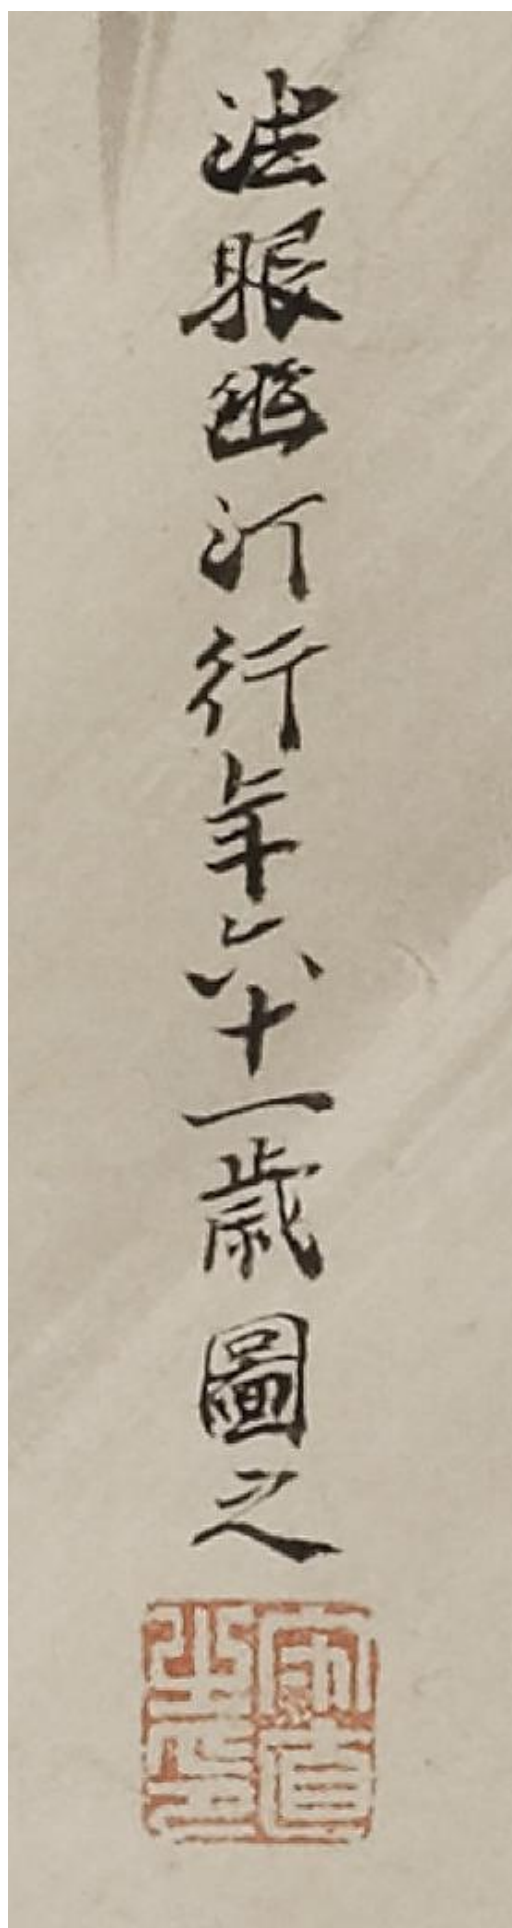 法眼幽汀行年六十一歳圖之